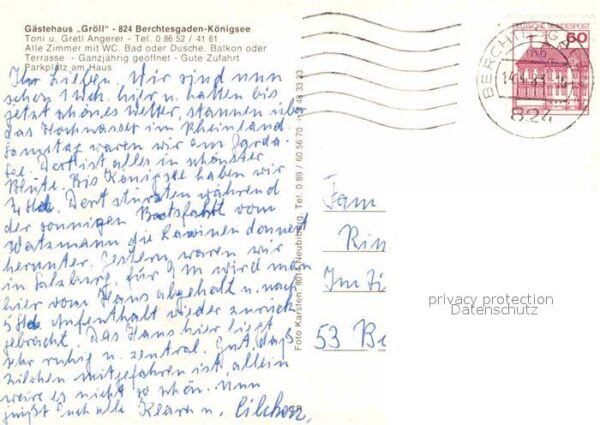 Gästehaus „Gröll" - 824 Berchtesgaden-Königsee
Toni u. Gretl Angerer - Tel. 0 86 52 / 41 61
Alle Zimmer mit WC, Bad oder Dusche, Balkon oder
Terrasse - Ganzjährig geöffnet - Gute Zufahrt
Parkplatz am Haus
Ihr Lieben. Wir sind nun
schon 1 Wch. hier u. hatten bis
jetzt schönes Wetter, staunen über
das Hochwasser im Rheinland.
Samstag waren wir am Garda-
see. Dort ist alles in schönster
Blüte. Bis Königsee haben wir
Std. Dort stürzten während
der sonnigen Bootsfahrt vom
Watzmann die Lawinen donnernd
herunter. Gestern waren wir
in Salzburg, für M wird man
hier vom Haus abgeholt u. nach
5 Std. Aufenthalt wieder zurück
gebracht. Das Haus hier liegt
sehr ruhig u. zentral. Gut, daß
Cilchen mitgefahren ist, allein
wäre es nicht so schön. Nun
grüßt Euch alle Klara u. Cilchen.
Foto Karsten, 8014 Neubiberg, Tel. 0 89 / 60 56 70
60
BERCHTESGA
824
Fam
Rin
Im
53 B
privacy protection
Datenschutz